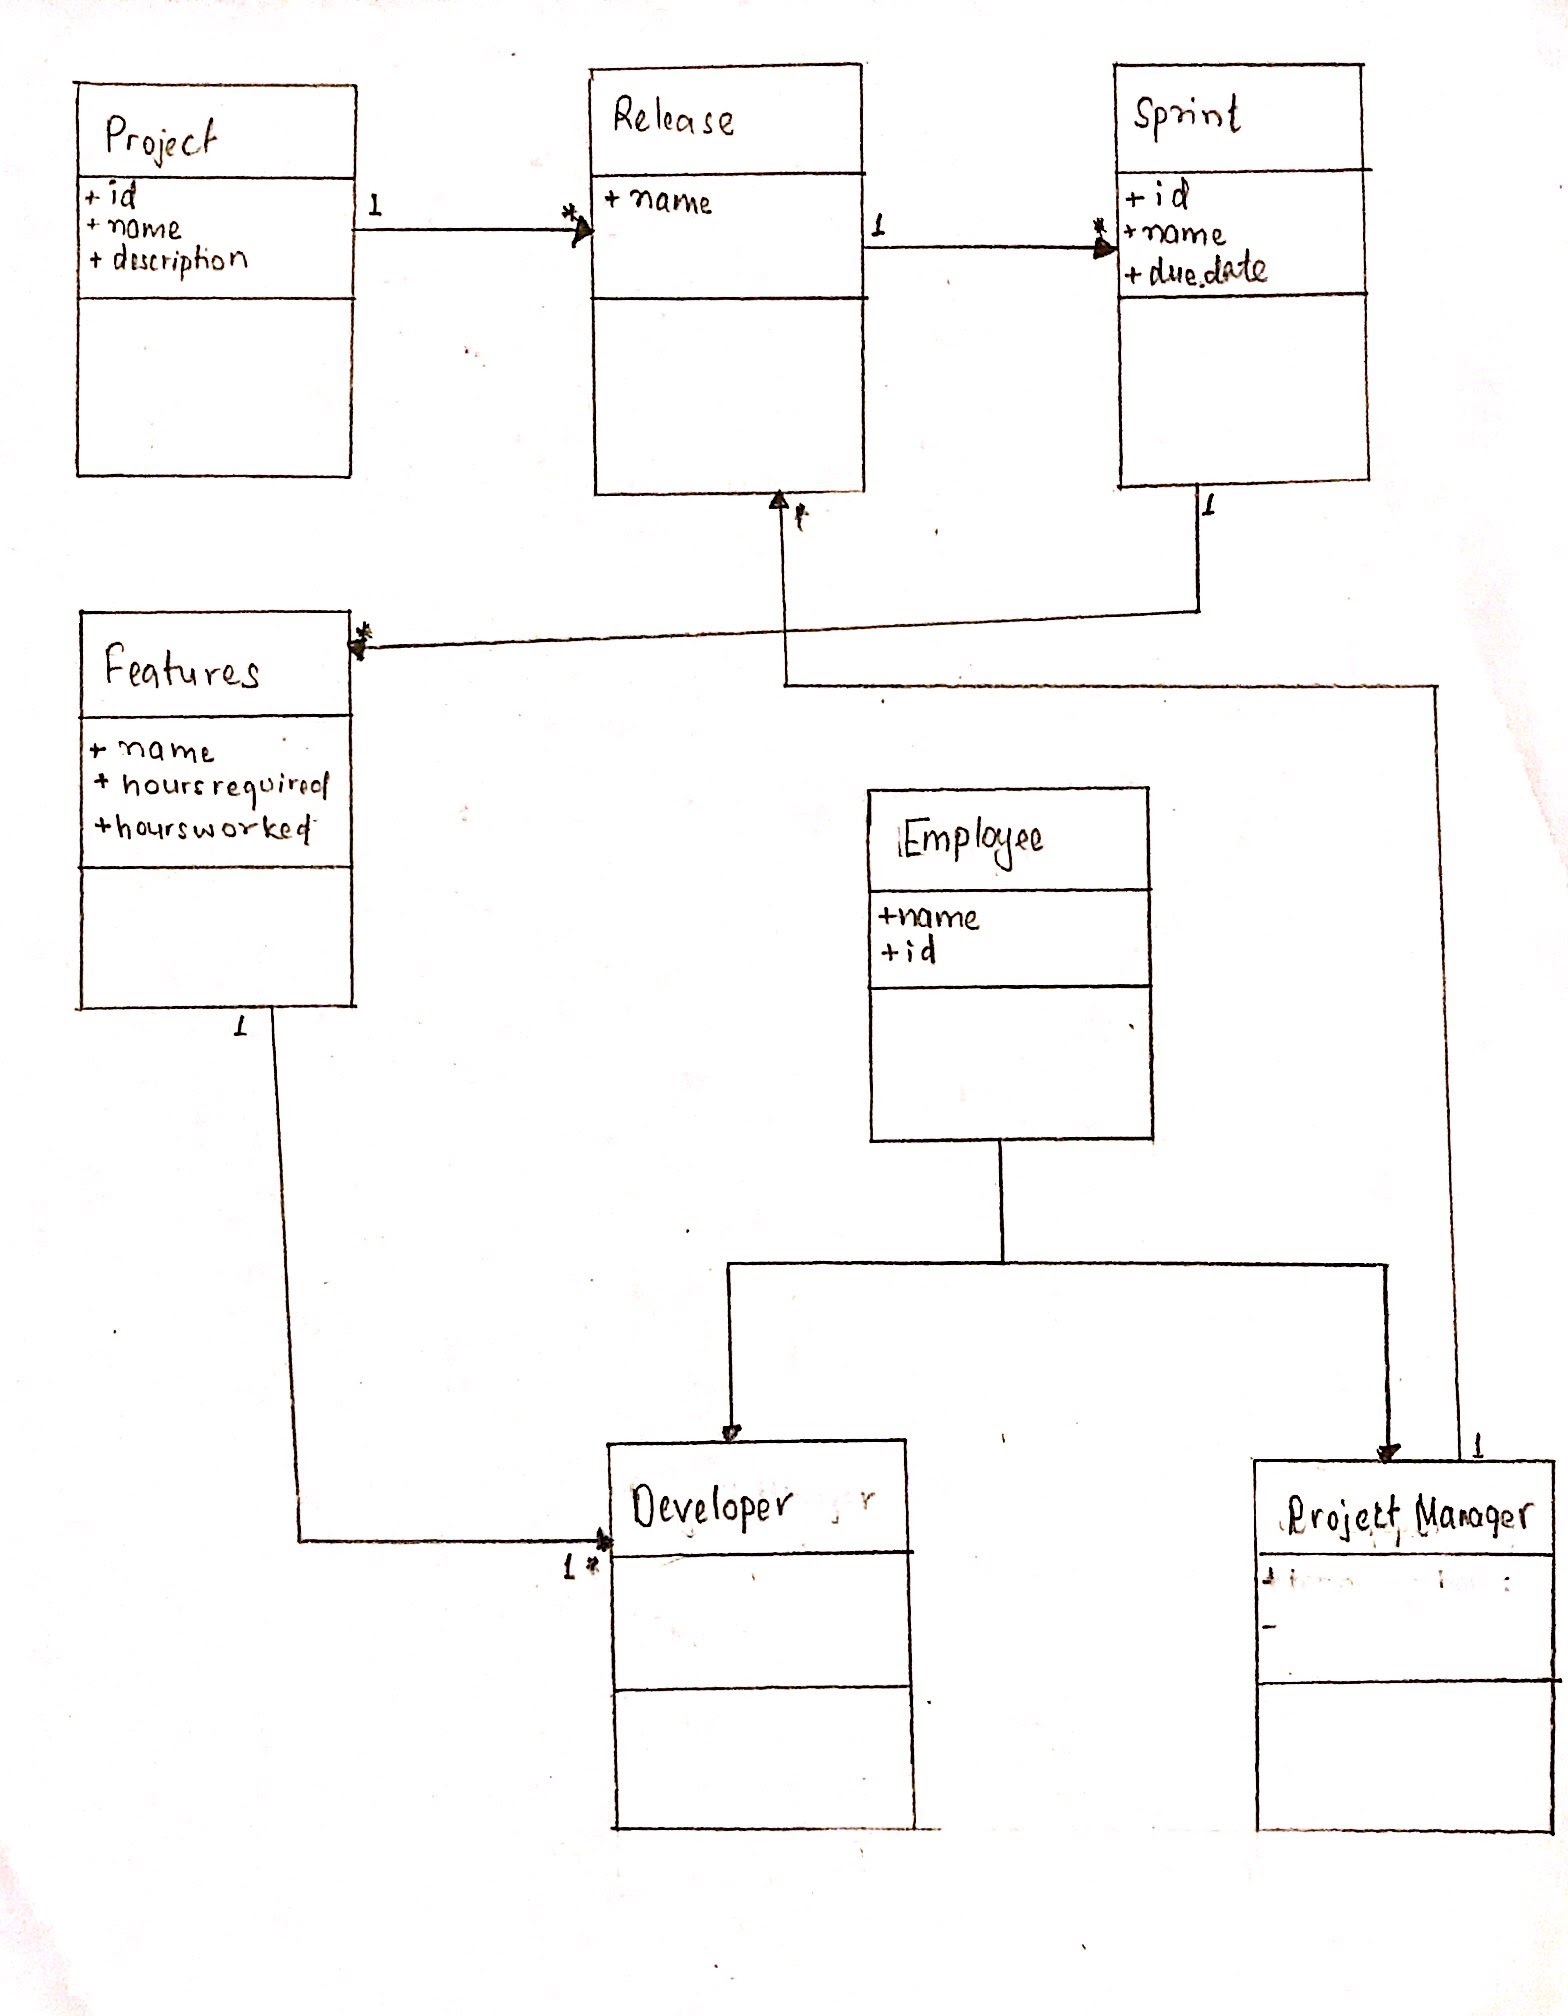 Project
+ id
+ name
+ description
1
*
Release
+ name
1
*
Sprint
+ id
+ name
+ due.date
1
*
*
Features
+ name
+ hoursrequired
+ hoursworked
1
Employee
+name
+id
1 *
Developer
1
Project Manager
+
-